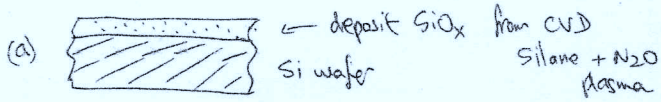 (a) ← deposit SiOx from CVD
Si wafer Silane + N2O
plasma